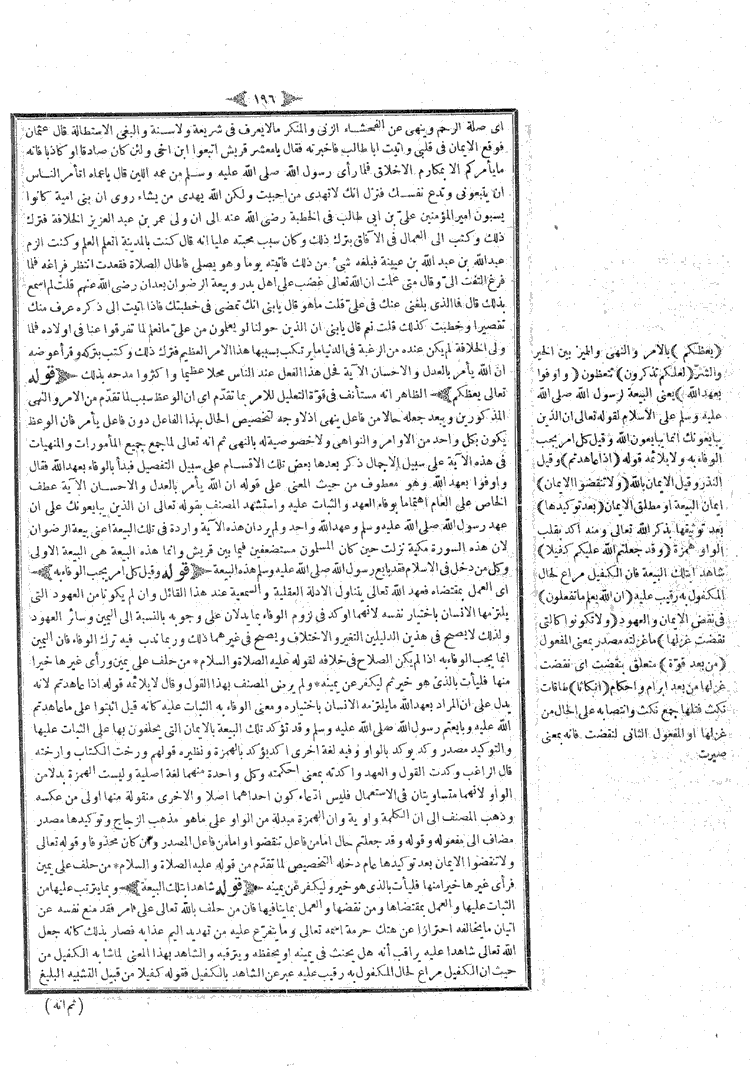 ﴿ ١٩٦ ﴾
اى صلة الرحم وينهى عن الفحشاء الزنى والمنكر مالا يعرف فى شريعة ولا سنة والبغى الاستطالة قال عثمان
فوقع الايمان فى قلبى واتيت ابا طالب فاخبرته فقال يا معشر قريش اتبعوا ابن اخى ولئن كان صادقا او كاذبا فانه
ما يأمركم الا بمكارم الاخلاق فلما رأى رسول الله صلى الله عليه وسلم من عمه اللين قال يا عماه اتأمر الناس
ان يتبعونى وتدع نفسك فنزل انك لا تهدى من احببت ولكن الله يهدى من يشاء روى ان بنى امية كانوا
يسبون امير المؤمنين على بن ابى طالب فى الخطبة رضى الله عنه الى ان ولى عمر بن عبد العزيز الخلافة فترك
ذلك وكتب الى العمال فى الآفاق بترك ذلك وكان سبب محبته عليا انه قال كنت بالمدينة اتعلم العلم وكنت الزم
عبد الله بن عبد الله بن عيينة فبلغه شئ من ذلك فاتيته يوما وهو يصلى فاطال الصلاة فقعدت انتظر فراغه فلما
فرغ التفت الى وقال متى علمت ان الله تعالى غضب على اهل بدر وبيعة الرضوان بعد ان رضى الله عنهم قلت لم اسمع
بذلك قال فما الذى بلغنى عنك فى على قلت ما هو قال يا بنى انك تمضى فى خطبتك فاذا اتيت الى ذكره عرف منك
تقصيرا وخطبت كذلك قلت نعم قال يا بنى ان الذين حولنا لو يعلمون من على ما نعلم لما تفرقوا عنا فى اولاده فلما
ولى الخلافة لم يكن عنده من الرغبة فى الدنيا ما يرتكب بسببها هذا الامر العظيم فترك ذلك وكتب بتركه وقرأ عوضه
ان الله يأمر بالعدل والاحسان الآية فحل هذا الفعل عند الناس محلا عظيما واكثروا مدحه بذلك ﴿ قوله
تعالى يعظكم ﴾ الظاهر انه مستأنف فى قوة التعليل للامر بما تقدم اى ان الوعظ سبب لما تقدم من الامر والنهى
المذكورين ويبعد جعله حالا من فاعل ينهى اذ لا وجه لتخصيص الحال بهذا الفاعل دون فاعل يأمر فان الوعظ
يكون بكل واحد من الاوامر والنواهى ولا خصوصية له بالنهى ثم انه تعالى لما جمع جميع المأمورات والمنهيات
فى هذه الآية على سبيل الاجمال ذكر بعدها بعض تلك الاقسام على سبيل التفصيل فبدأ بالوفاء بعهد الله فقال
واوفوا بعهد الله وهو معطوف من حيث المعنى على قوله ان الله يأمر بالعدل والاحسان الآية عطف
الخاص على العام اهتماما بوفاء العهد والثبات عليه واستشهد المصنف بقوله تعالى ان الذين يبايعونك على ان
عهد رسول الله صلى الله عليه وسلم وعهد الله واحد ولم يرد ان هذه الآية واردة فى تلك البيعة اعنى بيعة الرضوان
لان هذه السورة مكية نزلت حين كان المسلمون مستضعفين فيما بين قريش وانما هذه البيعة هى البيعة الاولى
وكل من دخل فى الاسلام فقد بايع رسول الله صلى الله عليه وسلم هذه البيعة ﴿ قوله وقيل كل امر يجب الوفاء به ﴾
اى العمل بمقتضاه فعهد الله تعالى يتناول الادلة العقلية والسمعية عند هذا القائل وان لم يكونا من العهود التى
يلتزمها الانسان باختيار نفسه لانهما اوكد فى لزوم الوفاء بما يدلان على وجوبه بالنسبة الى اليمين وسائر العهود
ولذلك لا يصح فى هذين الدليلين التغير والاختلاف ويصح فى غيرهما ذلك وربما ندب فيه ترك الوفاء فان اليمين
انما يجب الوفاء به اذا لم يكن الصلاح فى خلافه لقوله عليه الصلاة والسلام * من حلف على يمين ورأى غيرها خيرا
منها فليأت بالذى هو خير ثم ليكفر عن يمينه * ولم يرض المصنف بهذا القول وقال لا يلائمه قوله اذا عاهدتم لانه
يدل على ان المراد بعهد الله ما يلتزمه الانسان باختياره ومعنى الوفاء به الثبات عليه كانه قيل اثبتوا على ما عاهدتم
الله عليه وبايعتم رسول الله صلى الله عليه وسلم وقد تؤكد تلك البيعة بالايمان التى يحلفون بها على الثبات عليها
والتوكيد مصدر وكد يوكد بالواو وفيه لغة اخرى اكد يؤكد بالهمزة ونظيره قولهم ورخت الكتاب وارخته
قال الراغب وكدت القول والعهد واكدته بمعنى احكمته وكل واحدة منهما لغة اصلية وليست الهمزة بدلا من
الواو لانهما متساويتان فى الاستعمال فليس ادعاء كون احداهما اصلا والاخرى منقولة منها اولى من عكسه
وذهب المصنف الى ان الكلمة واوية وان الهمزة مبدلة من الواو على ما هو مذهب الزجاج وتوكيدها مصدر
مضاف الى مفعوله وقوله وقد جعلتم حال اما من فاعل تنقضوا واما من فاعل المصدر وان كان محذوفا وقوله تعالى
ولا تنقضوا الايمان بعد توكيدها عام دخله التخصيص لما تقدم من قوله عليه الصلاة والسلام * من حلف على يمين
فرأى غيرها خيرا منها فليأت بالذى هو خير وليكفر عن يمينه ﴿ قوله شاهدا بتلك البيعة ﴾ وبما يترتب عليها من
الثبات عليها والعمل بمقتضاها ومن نقضها والعمل بما ينافيها فان من حلف بالله تعالى على امر فقد منع نفسه عن
اتيان ما يخالفه احترازا عن هتك حرمة اسمه تعالى وما يتفرع عليه من تهديد اليم عذابه فصار بذلك كانه جعل
الله تعالى شاهدا عليه يراقب أنه هل يحنث فى يمينه او يحفظه ويترقبه والشاهد بهذا المعنى لما شابه الكفيل من
حيث ان الكفيل مراع لحال المكفول به رقيب عليه عبر عن الشاهد بالكفيل فقوله كفيلا من قبيل التشبيه البليغ
( ثم انه )
﴿ يعظكم ﴾ بالامر والنهى والميز بين الخير
والشر ﴿ لعلكم تذكرون ﴾ تتعظون ﴿ واوفوا
بعهد الله ﴾ يعنى البيعة لرسول الله صلى الله
عليه وسلم على الاسلام لقوله تعالى ان الذين
يبايعونك انما يبايعون الله وقيل كل امر يجب
الوفاء به ولا يلائمه قوله ﴿ اذا عاهدتم ﴾ وقيل
النذر وقيل الايمان بالله ﴿ ولا تنقضوا الايمان ﴾
ايمان البيعة او مطلق الايمان ﴿ بعد توكيدها ﴾
بعد توثيقها بذكر الله تعالى ومنه اكد بقلب
الواو همزة ﴿ وقد جعلتم الله عليكم كفيلا ﴾
شاهدا بتلك البيعة فان الكفيل مراع لحال
المكفول به رقيب عليه ﴿ ان الله يعلم ما تفعلون ﴾
فى نقض الايمان والعهود ﴿ ولا تكونوا كالتى
نقضت غزلها ﴾ ما غزلته مصدر بمعنى المفعول
﴿ من بعد قوة ﴾ متعلق بنقضت اى نقضت
غزلها من بعد ابرام واحكام ﴿ انكاثا ﴾ طاقات
نكث فتلها جمع نكث وانتصابه على الحال من
غزلها او المفعول الثانى لنقضت فانه بمعنى
صيرت